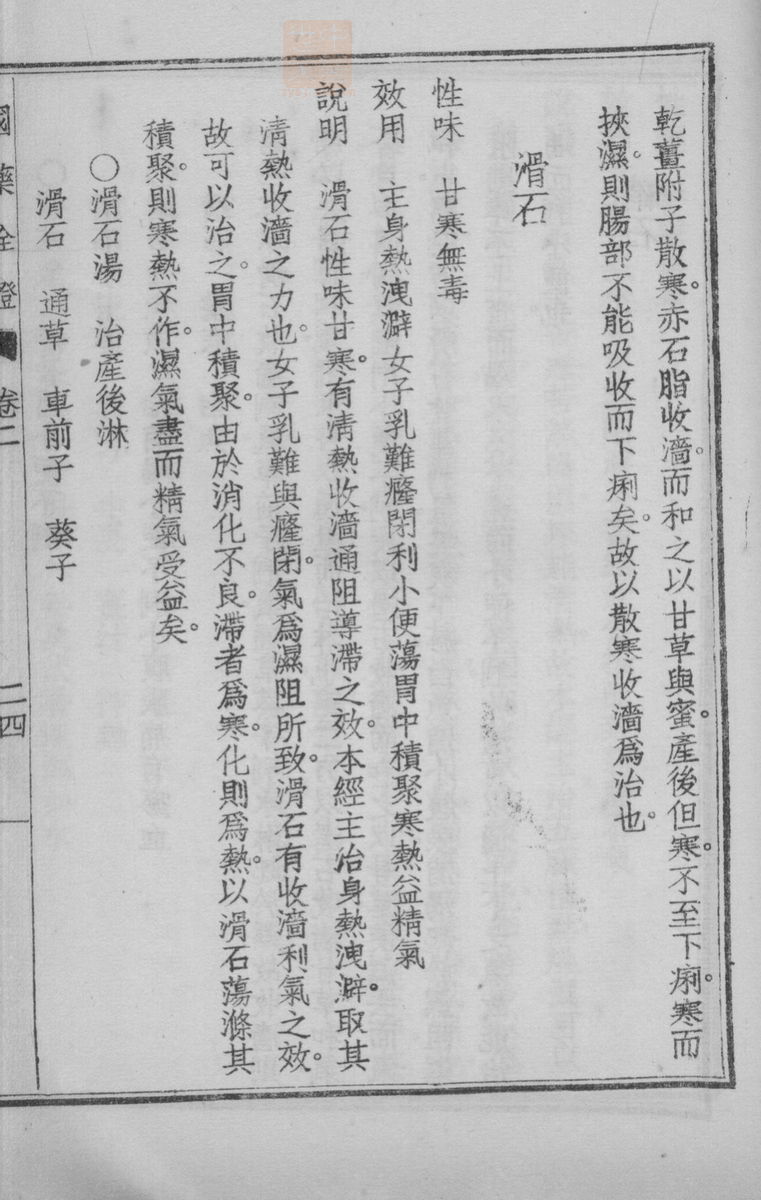 乾薑附子散寒。赤石脂收濇。而和之以甘草與蜜。產後但寒。不至下痢。寒而
挾濕。則腸部不能吸收而下痢矣。故以散寒收濇爲治也。
滑石
性味　甘寒無毒
效用　主身熱洩澼女子乳難癃閉利小便蕩胃中積聚寒熱益精氣
說明　滑石性味甘寒。有清熱收濇通阻導滯之效。本經主治身熱洩澼。取其
清熱收濇之力也。女子乳難與癃閉。氣爲濕阻所致。滑石有收濇利氣之效。
故可以治之。胃中積聚。由於消化不良。滯者爲寒。化則爲熱。以滑石蕩滌其
積聚。則寒熱不作。濕氣盡而精氣受益矣。
〇滑石湯　治產後淋
滑石　通草　車前子　葵子
國藥詮證　卷二　二四